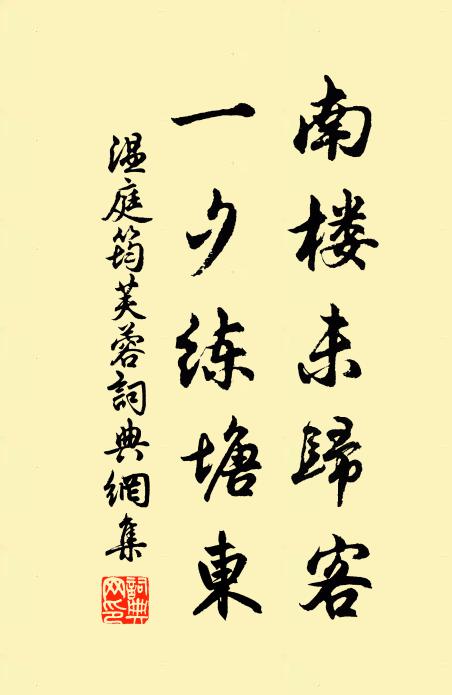 南楼未歸客
一夕练塘東
温庭筠芙蓉詞典網集
詞典网印